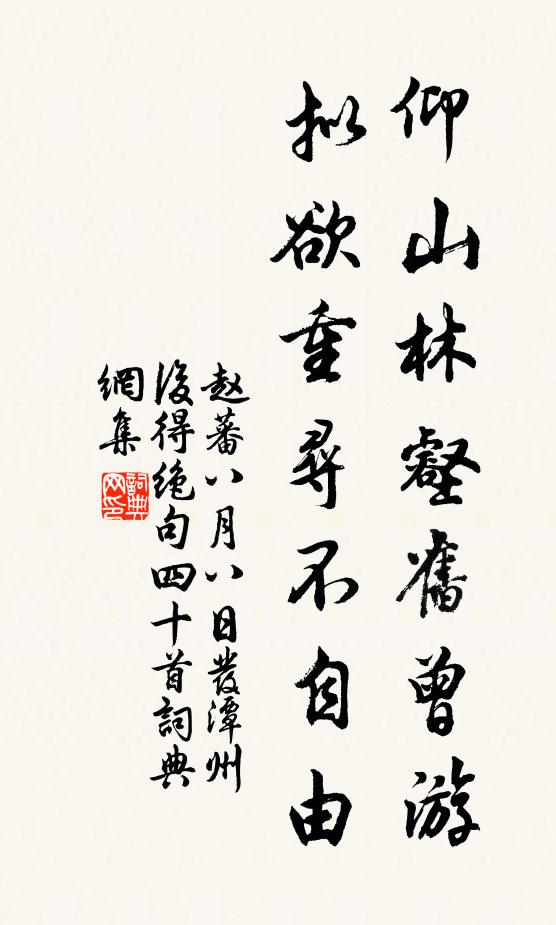 仰山林壑舊曾游
拟欲重尋不自由
赵蕃八月八日發潭州
後得绝句四十首詞典
網集
詞典
网印